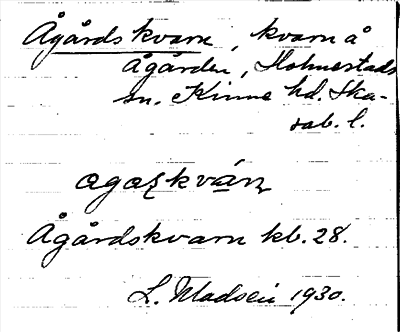 Ågårdskvarn, kvarn å
Ågården, Holmestads
sn. Kinne hd. Ska-
rab. l.
Ågårdskvarn kb. 28.
L. Madsén 1930.